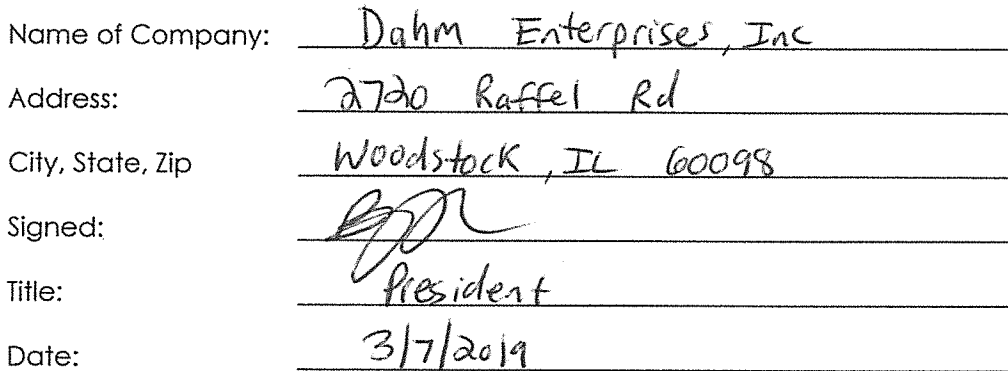 Name of Company: Dahm Enterprises, Inc
Address: 2720 Raffel Rd
City, State, Zip Woodstock, IL 60098
Signed:
Title: President
Date: 3/7/2019